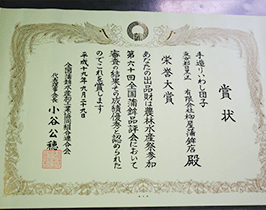 賞状
手造りいわし団子
東京都目黒区 有限会社 柳屋蒲鉾店 殿
栄誉大賞
あなたの出品財は農林水産祭参加
第六十回全国蒲鉾品評会において
審査の結果その成績優秀と認められた
のでこれを賞します
平成十九年九月二十九日
全国蒲鉾水産加工業協同組合連合会
代表審査長 小谷公穂